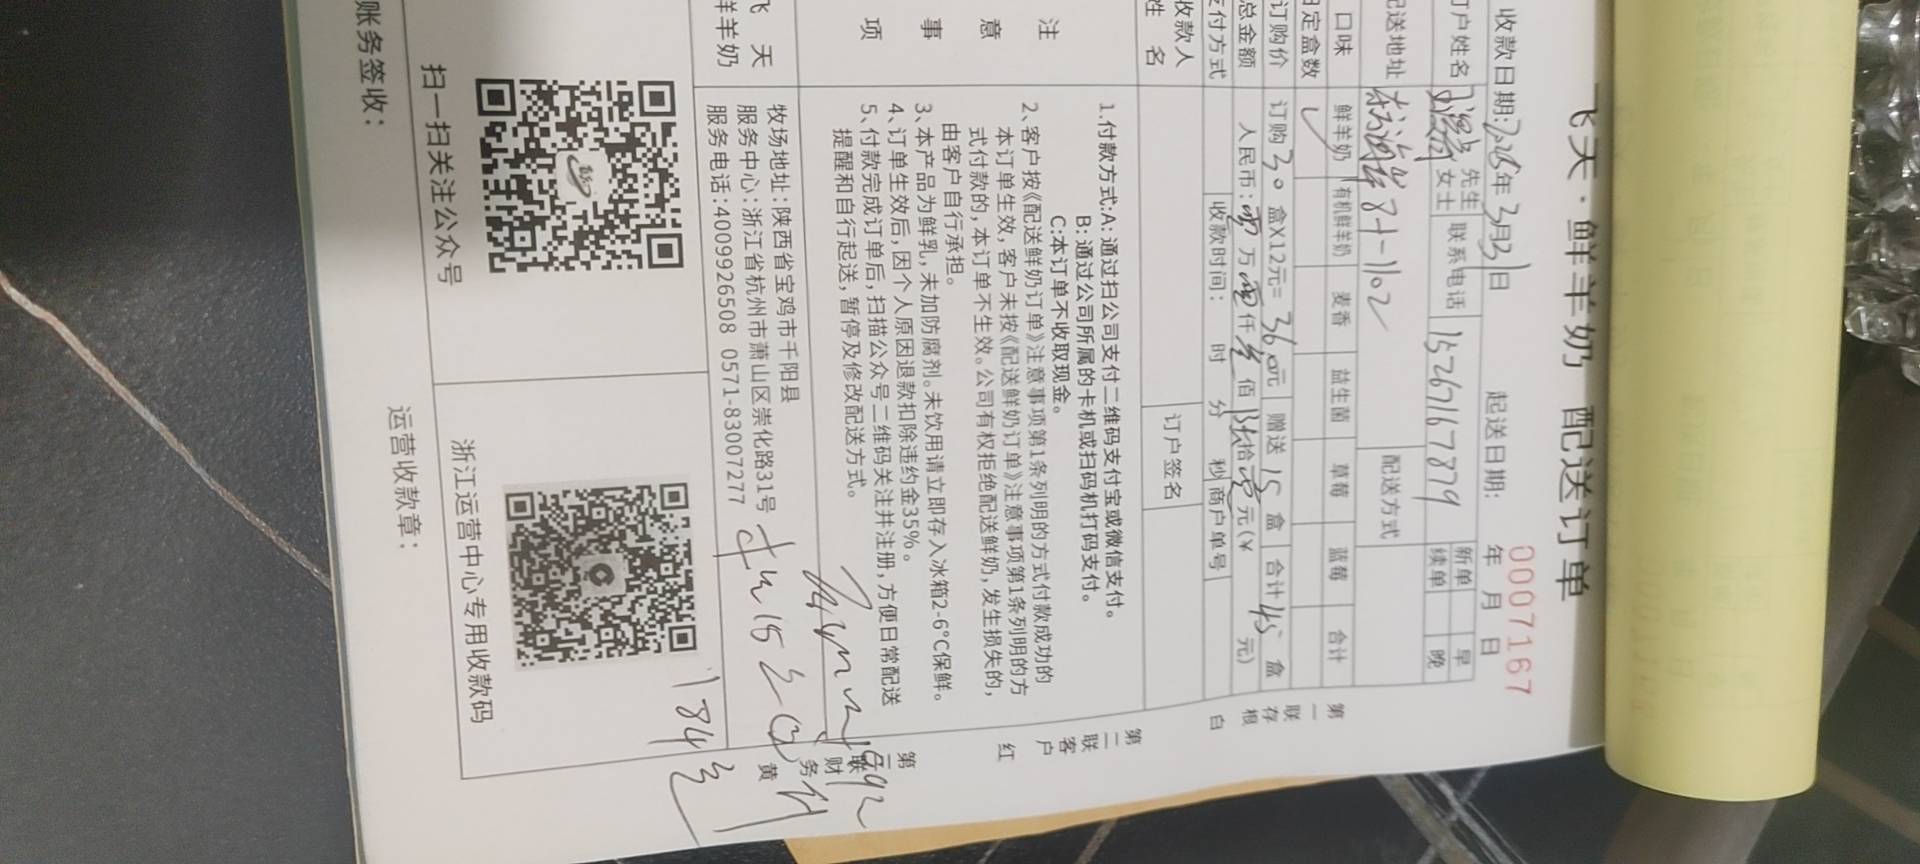 飞天·鲜羊奶 配送订单
0007167
收款日期:2025年3月3日 起送日期: 年 月 日
订户姓名 先生 女士 联系电话 15267167879 新单 续单 早 晚
配送地址 81-1102 配送方式
口味 鲜羊奶 有机鲜羊奶 麦香 益生菌 草莓 蓝莓 合计
定盒数 ✓
订购价 订购30盒X12元=360元 赠送15盒 合计45盒
总金额 人民币:零万零仟叁佰陆拾零元(¥ 元)
支付方式 收款时间: 时 分 秒 商户单号
收款人姓名 订户签名
注意事项
1.付款方式:A: 通过扫公司支付二维码支付宝或微信支付。
B: 通过公司所属的卡机或扫码机打码支付。
C:本订单不收取现金。
2、客户按《配送鲜奶订单》注意事项第1条列明的方式付款成功的
本订单生效,客户未按《配送鲜奶订单》注意事项第1条列明的方
式付款的,本订单不生效。公司有权拒绝配送鲜奶,发生损失的,
由客户自行承担。
3、本产品为鲜乳,未加防腐剂。未饮用请立即存入冰箱2-6°C保鲜。
4、订单生效后,因个人原因退款扣除违约金35%。
5、付款完成订单后,扫描公众号二维码关注并注册,方便日常配送
提醒和自行起送,暂停及修改配送方式。
飞天
鲜羊奶
牧场地址:陕西省宝鸡市千阳县
服务中心:浙江省杭州市萧山区崇化路31号
服务电话:4009926508 0571-83007277
扫一扫关注公众号
浙江运营中心专用收款码
账务签收:
运营收款章:
第一联存根 白
第二联客户 红
第三联财务 黄